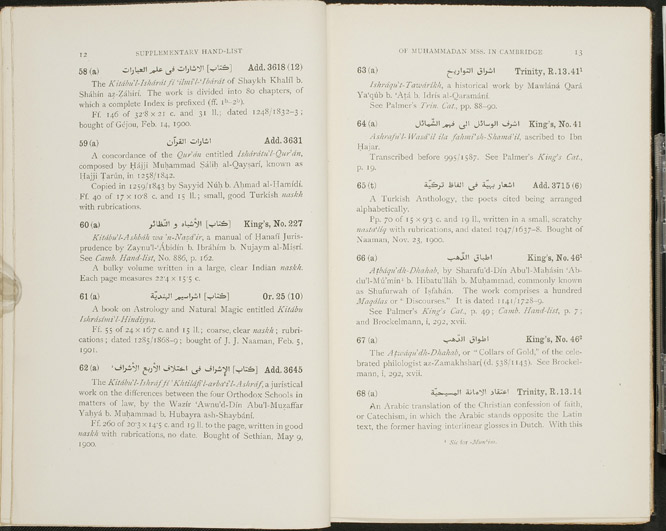 12 SUPPLEMENTARY HAND-LIST
58 (a) [كتاب] الاشارات فى علم العبارات Add. 3618 (12)
The Kitábu'l-Ishárát fí 'ilmi'l-'Ibárát of Shaykh Khalíl b.
Sháhín aẓ-Ẓáhirí. The work is divided into 80 chapters, of
which a complete Index is prefixed (ff. 1ᵇ-2ᵇ).
Ff. 146 of 32·8 × 21 c. and 31 ll.; dated 1248/1832-3;
bought of Géjou, Feb. 14, 1900.
59 (a) اشارات القرآن Add. 3631
A concordance of the Qur'án entitled Ishárátu'l-Qur'án,
composed by Ḥájji Muḥammad Ṣáliḥ al-Qayṣarí, known as
Ḥajji Tarún, in 1258/1842.
Copied in 1259/1843 by Sayyid Núḥ b. Aḥmad al-Ḥamídí.
Ff. 40 of 17 × 10·8 c. and 15 ll.; small, good Turkish naskh
with rubrications.
60 (a) [كتاب] الأشباه و النظائر King's, No. 227
Kitábu'l-Ashbáh wa'n-Naẓá'ir, a manual of Ḥanafí Juris-
prudence by Zaynu'l-'Ábidín b. Ibráhím b. Nujaym al-Miṣrí.
See Camb. Hand-list, No. 886, p. 162.
A bulky volume written in a large, clear Indian naskh.
Each page measures 22·4 × 15·5 c.
61 (a) [كتاب] اشراسيم الهنديّة Or. 25 (10)
A book on Astrology and Natural Magic entitled Kitábu
Ishrásími'l-Hindiyya.
Ff. 55 of 24 × 16·7 c. and 15 ll.; coarse, clear naskh; rubri-
cations; dated 1285/1868-9; bought of J. J. Naaman, Feb. 5,
1901.
62 (a) [كتاب] الإشراف فى اختلاف الأربع الأشراف Add. 3645
The Kitábu'l-Ishráf fí 'Khtiláfi'l-arba'i'l-Ashráf, a juristical
work on the differences between the four Orthodox Schools in
matters of law, by the Wazír 'Awnu'd-Dín Abu'l-Muẓaffar
Yaḥyá b. Muḥammad b. Hubayra ash-Shaybání.
Ff. 260 of 20·3 × 14·5 c. and 19 ll. to the page, written in good
naskh with rubrications, no date. Bought of Sethian, May 9,
1900.
OF MUHAMMADAN MSS. IN CAMBRIDGE 13
63 (a) اشراق التواريخ Trinity, R.13.41¹
Ishráqu't-Tawáríkh, a historical work by Mawláná Qará
Ya'qúb b. 'Aṭá b. Idrís al-Qaramání.
See Palmer's Trin. Cat., pp. 88-90.
64 (a) اشرف الوسائل الى فهم الشّمائل King's, No. 41
Ashrafu'l-Wasá'il ila fahmi'sh-Shamá'il, ascribed to Ibn
Ḥajar.
Transcribed before 995/1587. See Palmer's King's Cat.,
p. 19.
65 (t) اشعار بهيّة فى الفاظ تركيّة Add. 3715 (6)
A Turkish Anthology, the poets cited being arranged
alphabetically.
Pp. 70 of 15 × 9·3 c. and 19 ll., written in a small, scratchy
nasta'líq with rubrications, and dated 1047/1637-8. Bought of
Naaman, Nov. 23, 1900.
66 (a) اطباق الذّهب King's, No. 46¹
Aṭbáqu'dh-Dhahab, by Sharafu'd-Dín Abu'l-Maḥásin 'Ab-
du'l-Mú'min¹ b. Hibatu'lláh b. Muḥammad, commonly known
as Shufurwah of Iṣfahán. The work comprises a hundred
Maqálas or "Discourses." It is dated 1141/1728-9.
See Palmer's King's Cat., p. 49; Camb. Hand-list, p. 7;
and Brockelmann, i, 292, xvii.
67 (a) اطواق الذّهب King's, No. 46²
The Aṭwáqu'dh-Dhahab, or "Collars of Gold," of the cele-
brated philologist az-Zamakhsharí (d. 538/1143). See Brockel-
mann, i, 292, xvii.
68 (a) اعتقاد الامانة المسيحيّة Trinity, R.13.14
An Arabic translation of the Christian confession of faith,
or Catechism, in which the Arabic stands opposite the Latin
text, the former having interlinear glosses in Dutch. With this
¹ Sic for -Mu'min.